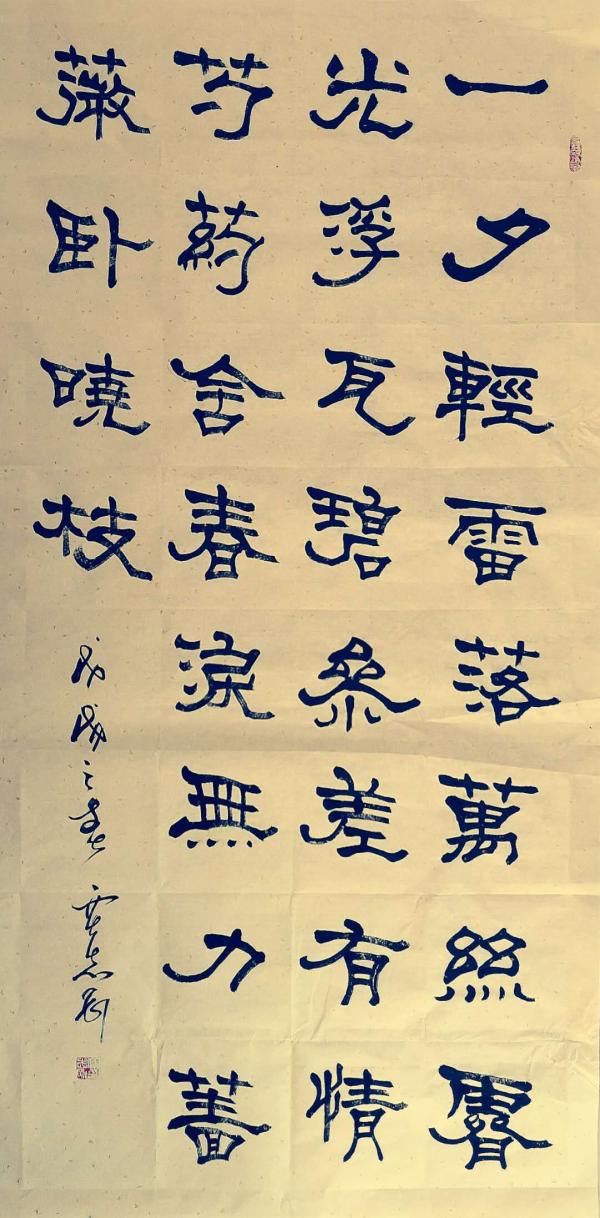 一夕輕雷落萬絲霽
光浮瓦碧參差有情
芍葯含春淚無力薔
薇卧曉枝
戊戌之春